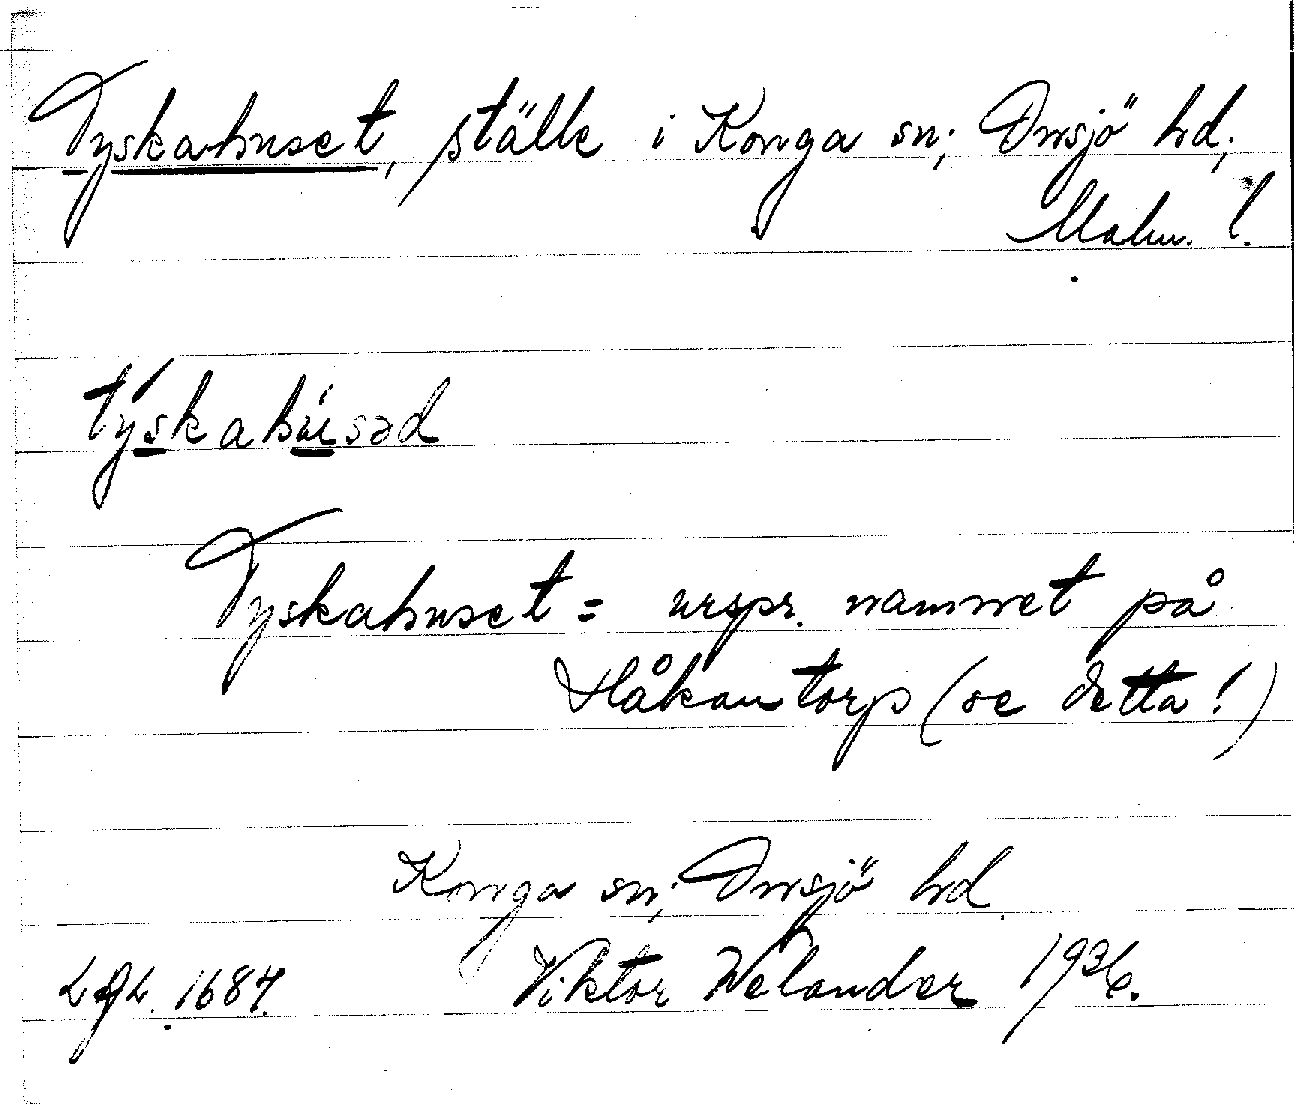 Tyskahuset, ställe i Konga sn; Onsjö hd;
Malm. l.
týskahúsəd
Tyskahuset = urspr. namnet på
Håkantorp (se detta!)
Konga sn; Onsjö hd
Viktor Welander 1936.
1684.